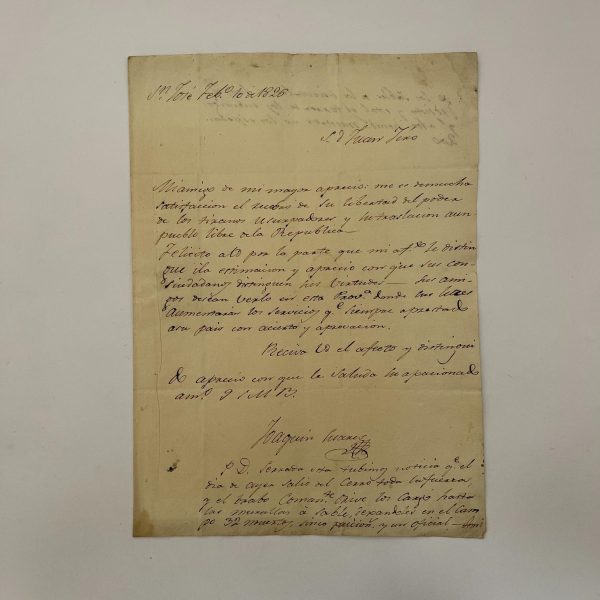 Sn. José Feb.o 10 de 1826
S. D. Juan
Mi amigo de mi mayor aprecio: me es de mucha
satisfaccion el de su libertad del poder
de los tiranos usurpadores y su traslacion a un
pueblo libre de la Republica
Felicito a Vd por la parte que mi af.o le distin
gue i la estimacion y aprecio con que sus con
ciudadanos distinguen sus virtudes — sus ami
gos desean verlo en esta Prov.a donde sus luces
aumentaran los servicios q.e siempre a prestado
a su pais con acierto y aprovacion.
Reciva Vd el afecto y distingui
do aprecio con que le saluda su apacionado
am.o Q S M B.
Joaquin Suarez
P. D. Serrada esta tubimos noticia q.e el
dia de ayer salio del Cerro toda la fuerza,
y el brabo Coman.te Orive los cargó hasta
las murallas á sable, dejandoles en el cam
po 32 muertos, sinco y un oficial —